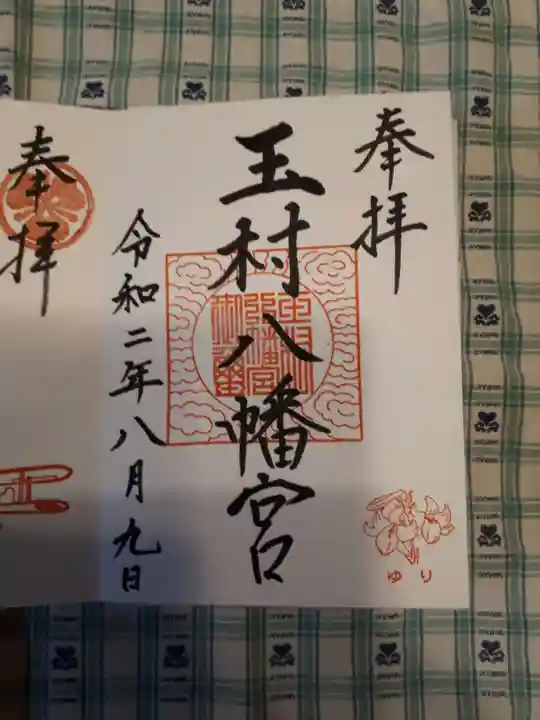 奉拝
玉村八幡宮
令和二年八月九日
ゆり
奉拝